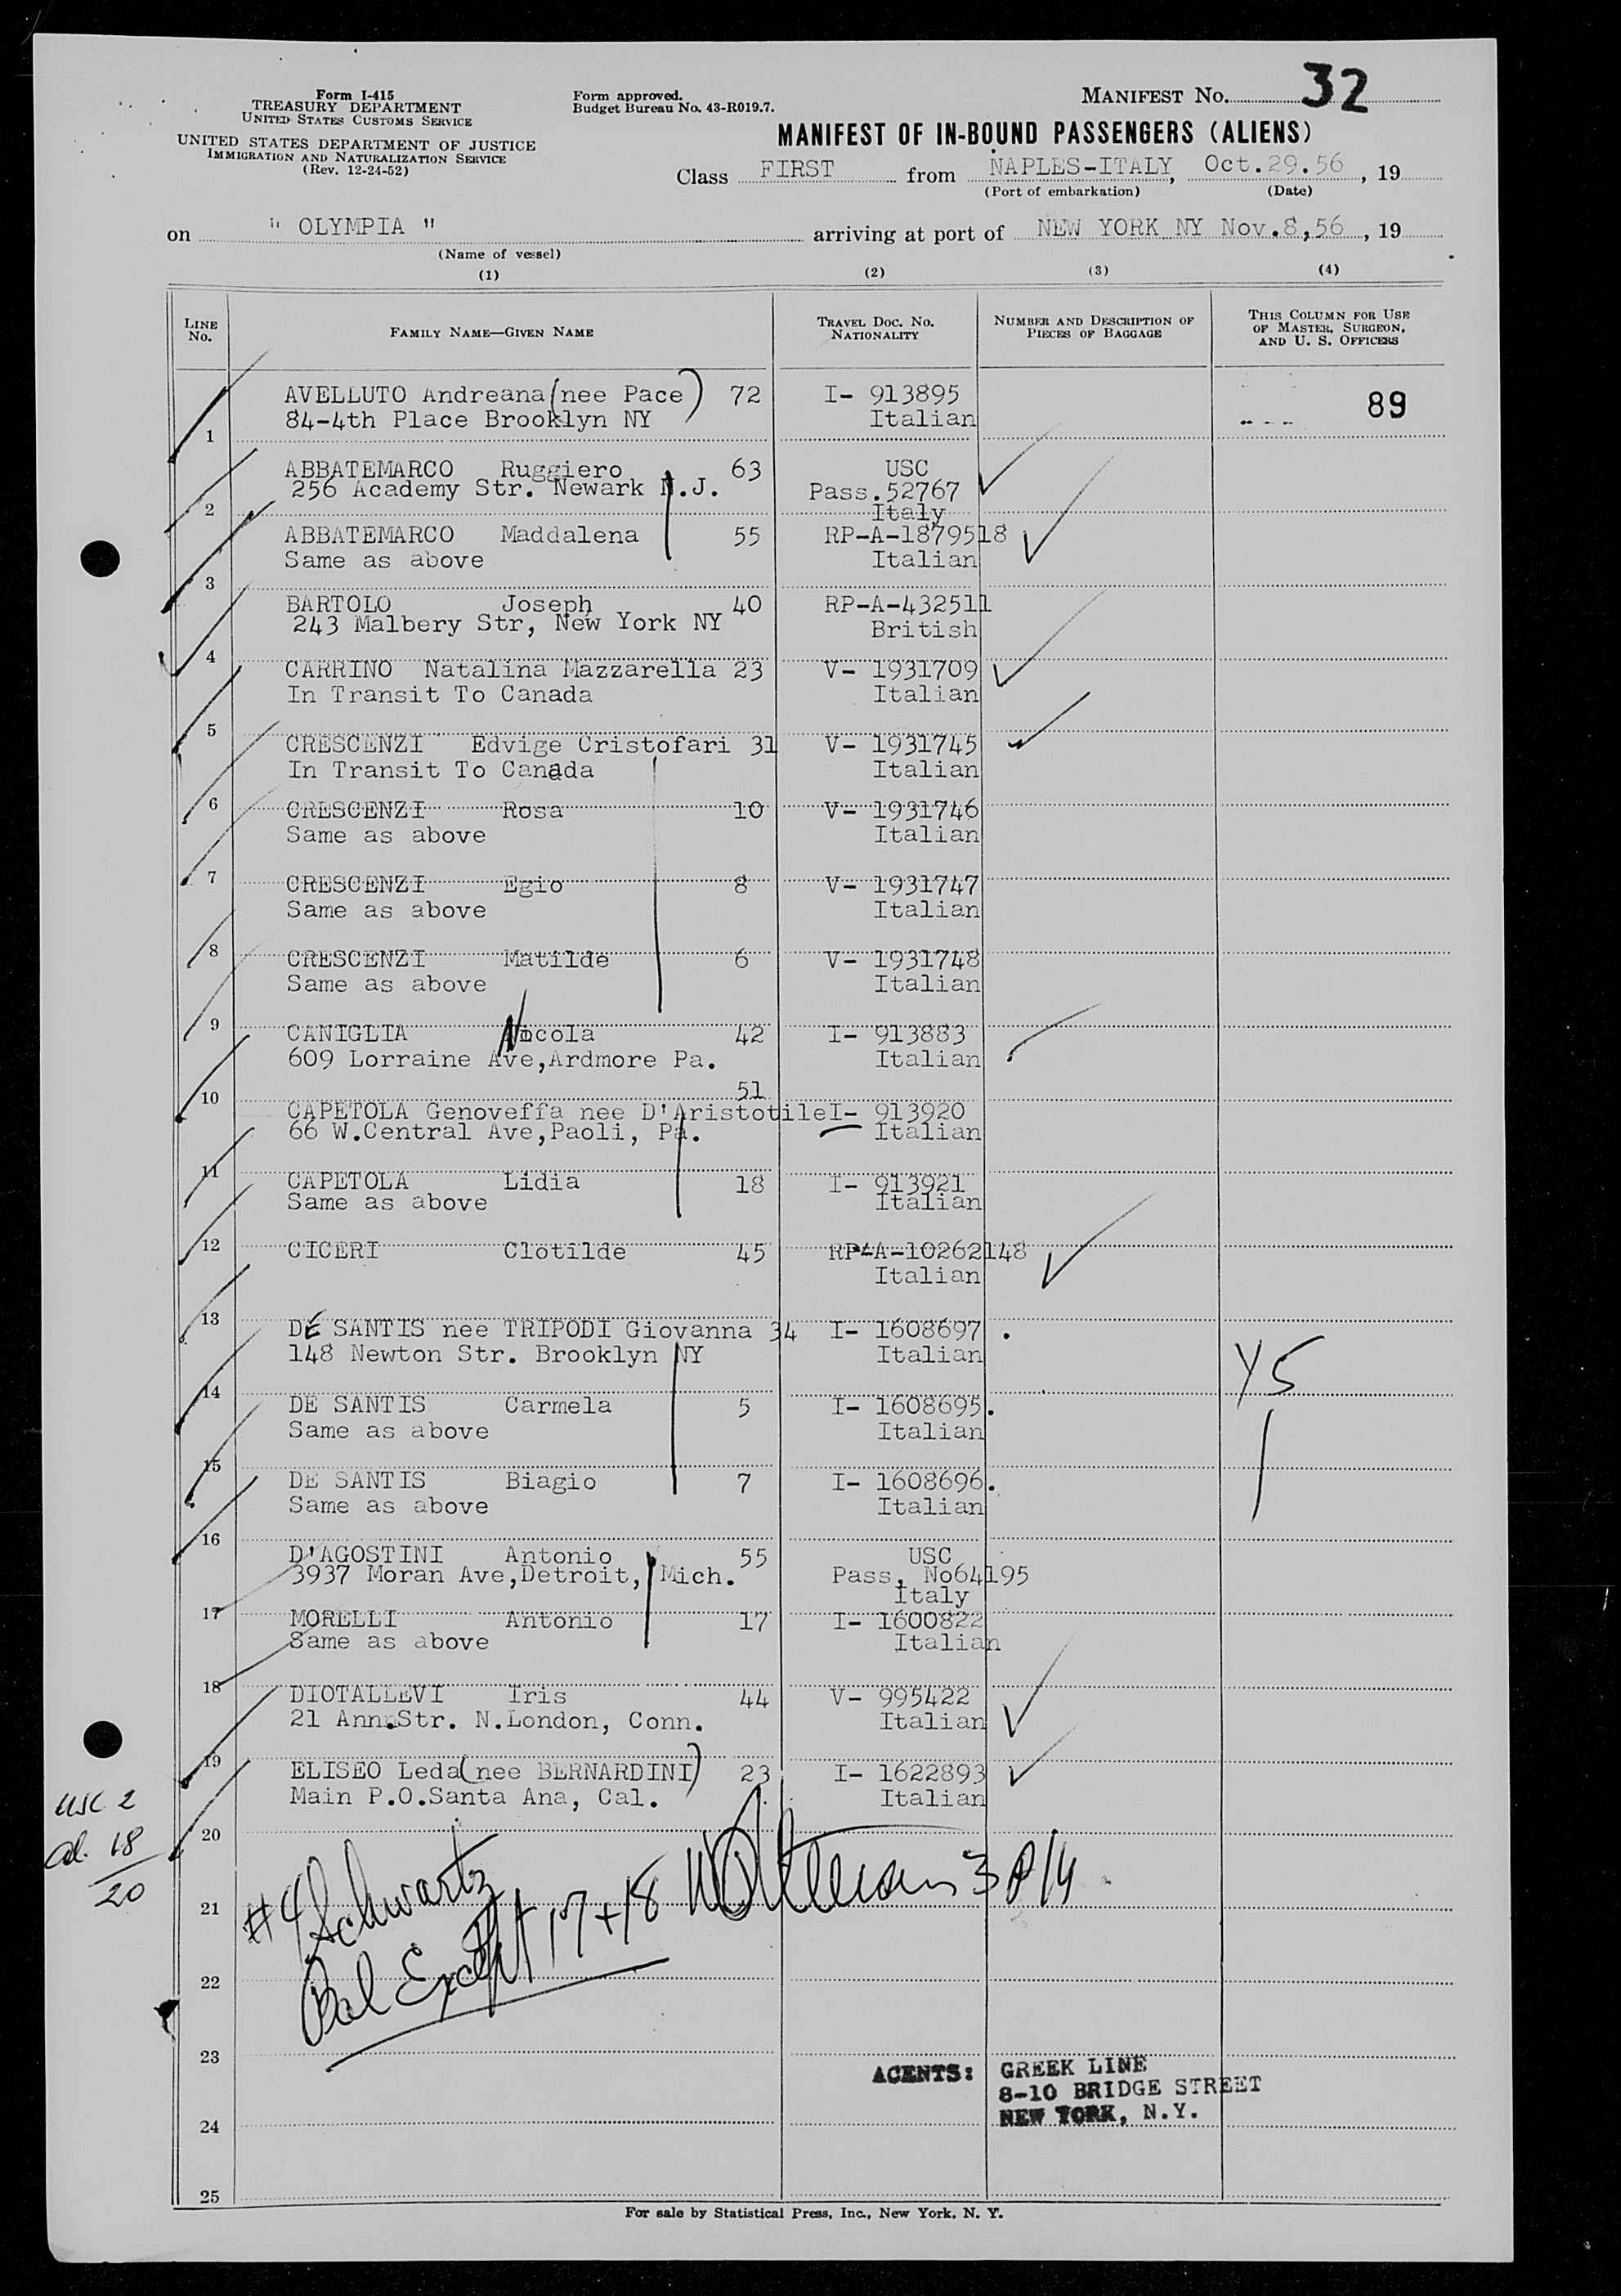 Form I-415
TREASURY DEPARTMENT
UNITED STATES CUSTOMS SERVICE
UNITED STATES DEPARTMENT OF JUSTICE
IMMIGRATION AND NATURALIZATION SERVICE
(Rev. 12-24-52)
Form approved.
Budget Bureau No. 43-R019.7.
MANIFEST No. 32
MANIFEST OF IN-BOUND PASSENGERS (ALIENS)
Class FIRST from NAPLES-ITALY, Oct.29.56, 19
(Port of embarkation) (Date)
on " OLYMPIA " arriving at port of NEW YORK NY Nov.8,56, 19
(Name of vessel)
(1) (2) (3) (4)
LINE No. FAMILY NAME—GIVEN NAME TRAVEL DOC. NO. NATIONALITY NUMBER AND DESCRIPTION OF PIECES OF BAGGAGE THIS COLUMN FOR USE OF MASTER, SURGEON, AND U. S. OFFICERS
AVELLUTO Andreana (nee Pace) 72 I- 913895 89
84-4th Place Brooklyn NY Italian
1
ABBATEMARCO Ruggiero 63 USC
256 Academy Str. Newark N.J. Pass.52767
2 Italy
ABBATEMARCO Maddalena 55 RP-A-1879518
Same as above Italian
3
BARTOLO Joseph 40 RP-A-432511
243 Malbery Str, New York NY British
4
CARRINO Natalina Mazzarella 23 V- 1931709
In Transit To Canada Italian
5
CRESCENZI Edvige Cristofari 31 V- 1931745
In Transit To Canada Italian
6 CRESCENZI Rosa 10 V- 1931746
Same as above Italian
7 CRESCENZI Egio 8 V- 1931747
Same as above Italian
8 CRESCENZI Matilde 6 V- 1931748
Same as above Italian
9 CANIGLIA Nicola 42 I- 913883
609 Lorraine Ave,Ardmore Pa. Italian
10 51
CAPETOLA Genoveffa nee D'Aristotile I- 913920
66 W.Central Ave,Paoli, Pa. Italian
11 CAPETOLA Lidia 18 I- 913921
Same as above Italian
12 CICERI Clotilde 45 RP-A-10262148
Italian
13
DE SANTIS nee TRIPODI Giovanna 34 I- 1608697
148 Newton Str. Brooklyn NY Italian Y5
14
DE SANTIS Carmela 5 I- 1608695
Same as above Italian
15
DE SANTIS Biagio 7 I- 1608696
Same as above Italian
16
D'AGOSTINI Antonio 55 USC
3937 Moran Ave,Detroit, Mich. Pass, No64195
Italy
17 MORELLI Antonio 17 I- 1600822
Same as above Italian
18 DIOTALLEVI Iris 44 V- 995422
21 Ann.Str. N.London, Conn. Italian
19 ELISEO Leda (nee BERNARDINI) 23 I- 1622893
Main P.O.Santa Ana, Cal. Italian
USC 2
al. 18
20
20
#4 Schwartz
21
Bal Except 17+18
22
23
24
25
AGENTS: GREEK LINE
8-10 BRIDGE STREET
NEW YORK, N.Y.
For sale by Statistical Press, Inc., New York, N. Y.